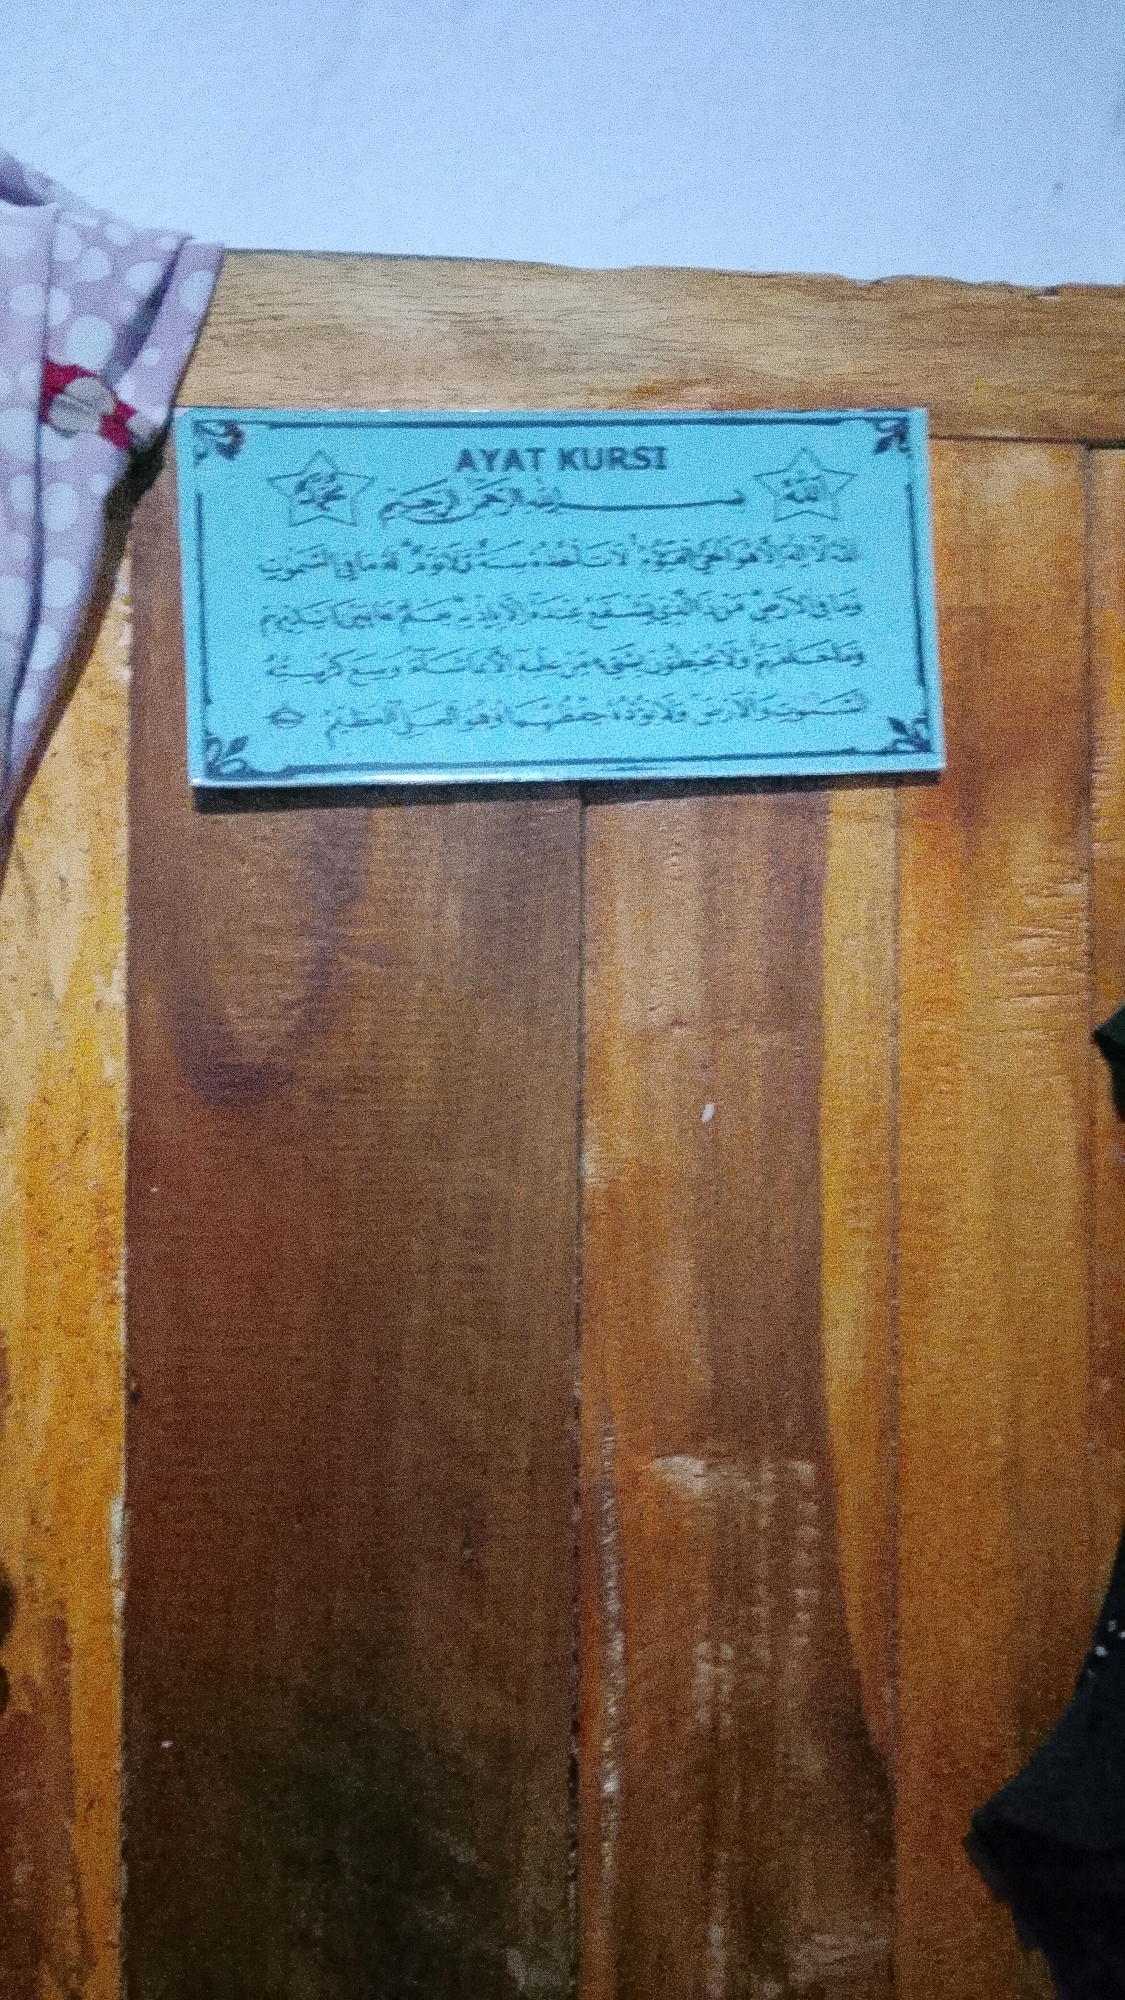 AYAT KURSI
محمد
الله
بسم الله الرحمن الرحيم
اللهُ لَا إِلٰهَ إِلَّا هُوَ الْحَيُّ الْقَيُّوْمُ لَا تَأْخُذُهُ سِنَةٌ وَلَا نَوْمٌ لَهُ مَا فِي السَّمٰوٰتِ
وَمَا فِي الْأَرْضِ مَنْ ذَا الَّذِيْ يَشْفَعُ عِنْدَهُ إِلَّا بِإِذْنِهِ يَعْلَمُ مَا بَيْنَ أَيْدِيْهِمْ
وَمَا خَلْفَهُمْ وَلَا يُحِيْطُوْنَ بِشَيْءٍ مِنْ عِلْمِهِ إِلَّا بِمَا شَاءَ وَسِعَ كُرْسِيُّهُ
السَّمٰوٰتِ وَالْأَرْضَ وَلَا يَئُوْدُهُ حِفْظُهُمَا وَهُوَ الْعَلِيُّ الْعَظِيْمُ